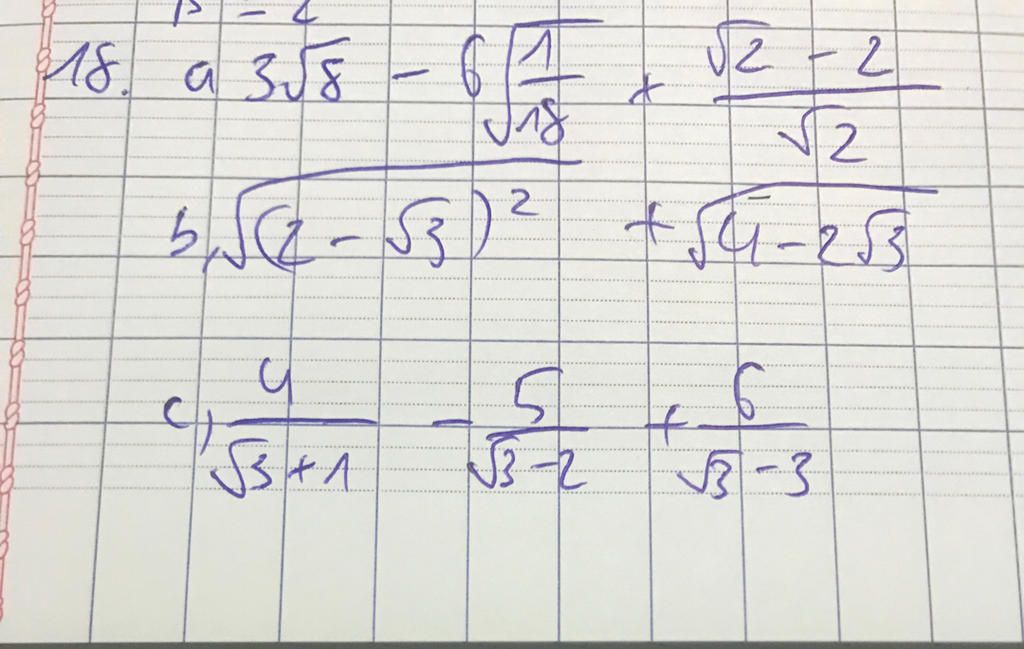 18. a 3√8 - 6√(1/18) + (√2 - 2)/√2
b, √((2 - √3)²) + √(4 - 2√3)
c, 4/(√3 + 1) - 5/(√3 - 2) + 6/(√3 - 3)